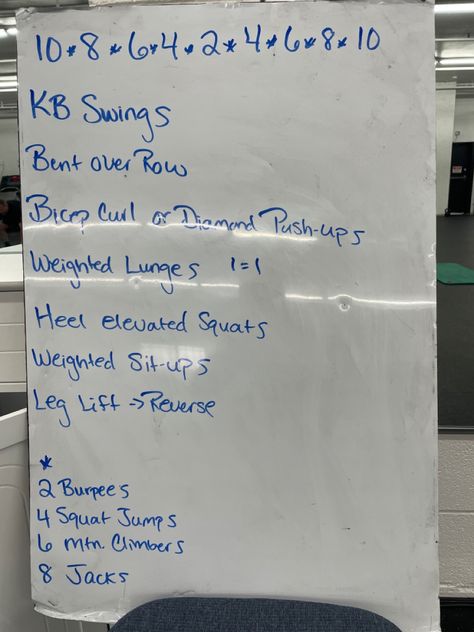 10 * 8 * 6 * 4 * 2 * 4 * 6 * 8 * 10
KB Swings
Bent over Row
Bicep Curl or Diamond Push-ups
Weighted Lunges 1=1
Heel elevated Squats
Weighted Sit-ups
Leg Lift → Reverse
*
2 Burpees
4 Squat Jumps
6 Mtn. Climbers
8 Jacks